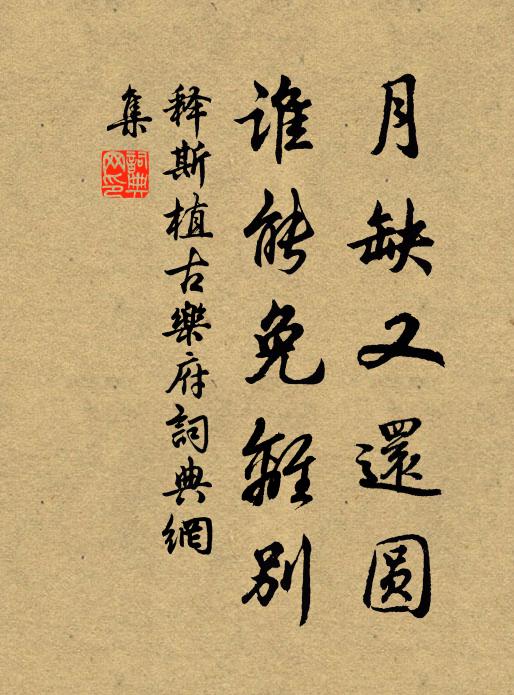 月缺又還圆
誰能免離别
释斯植古樂府詞典網
集
詞典網印